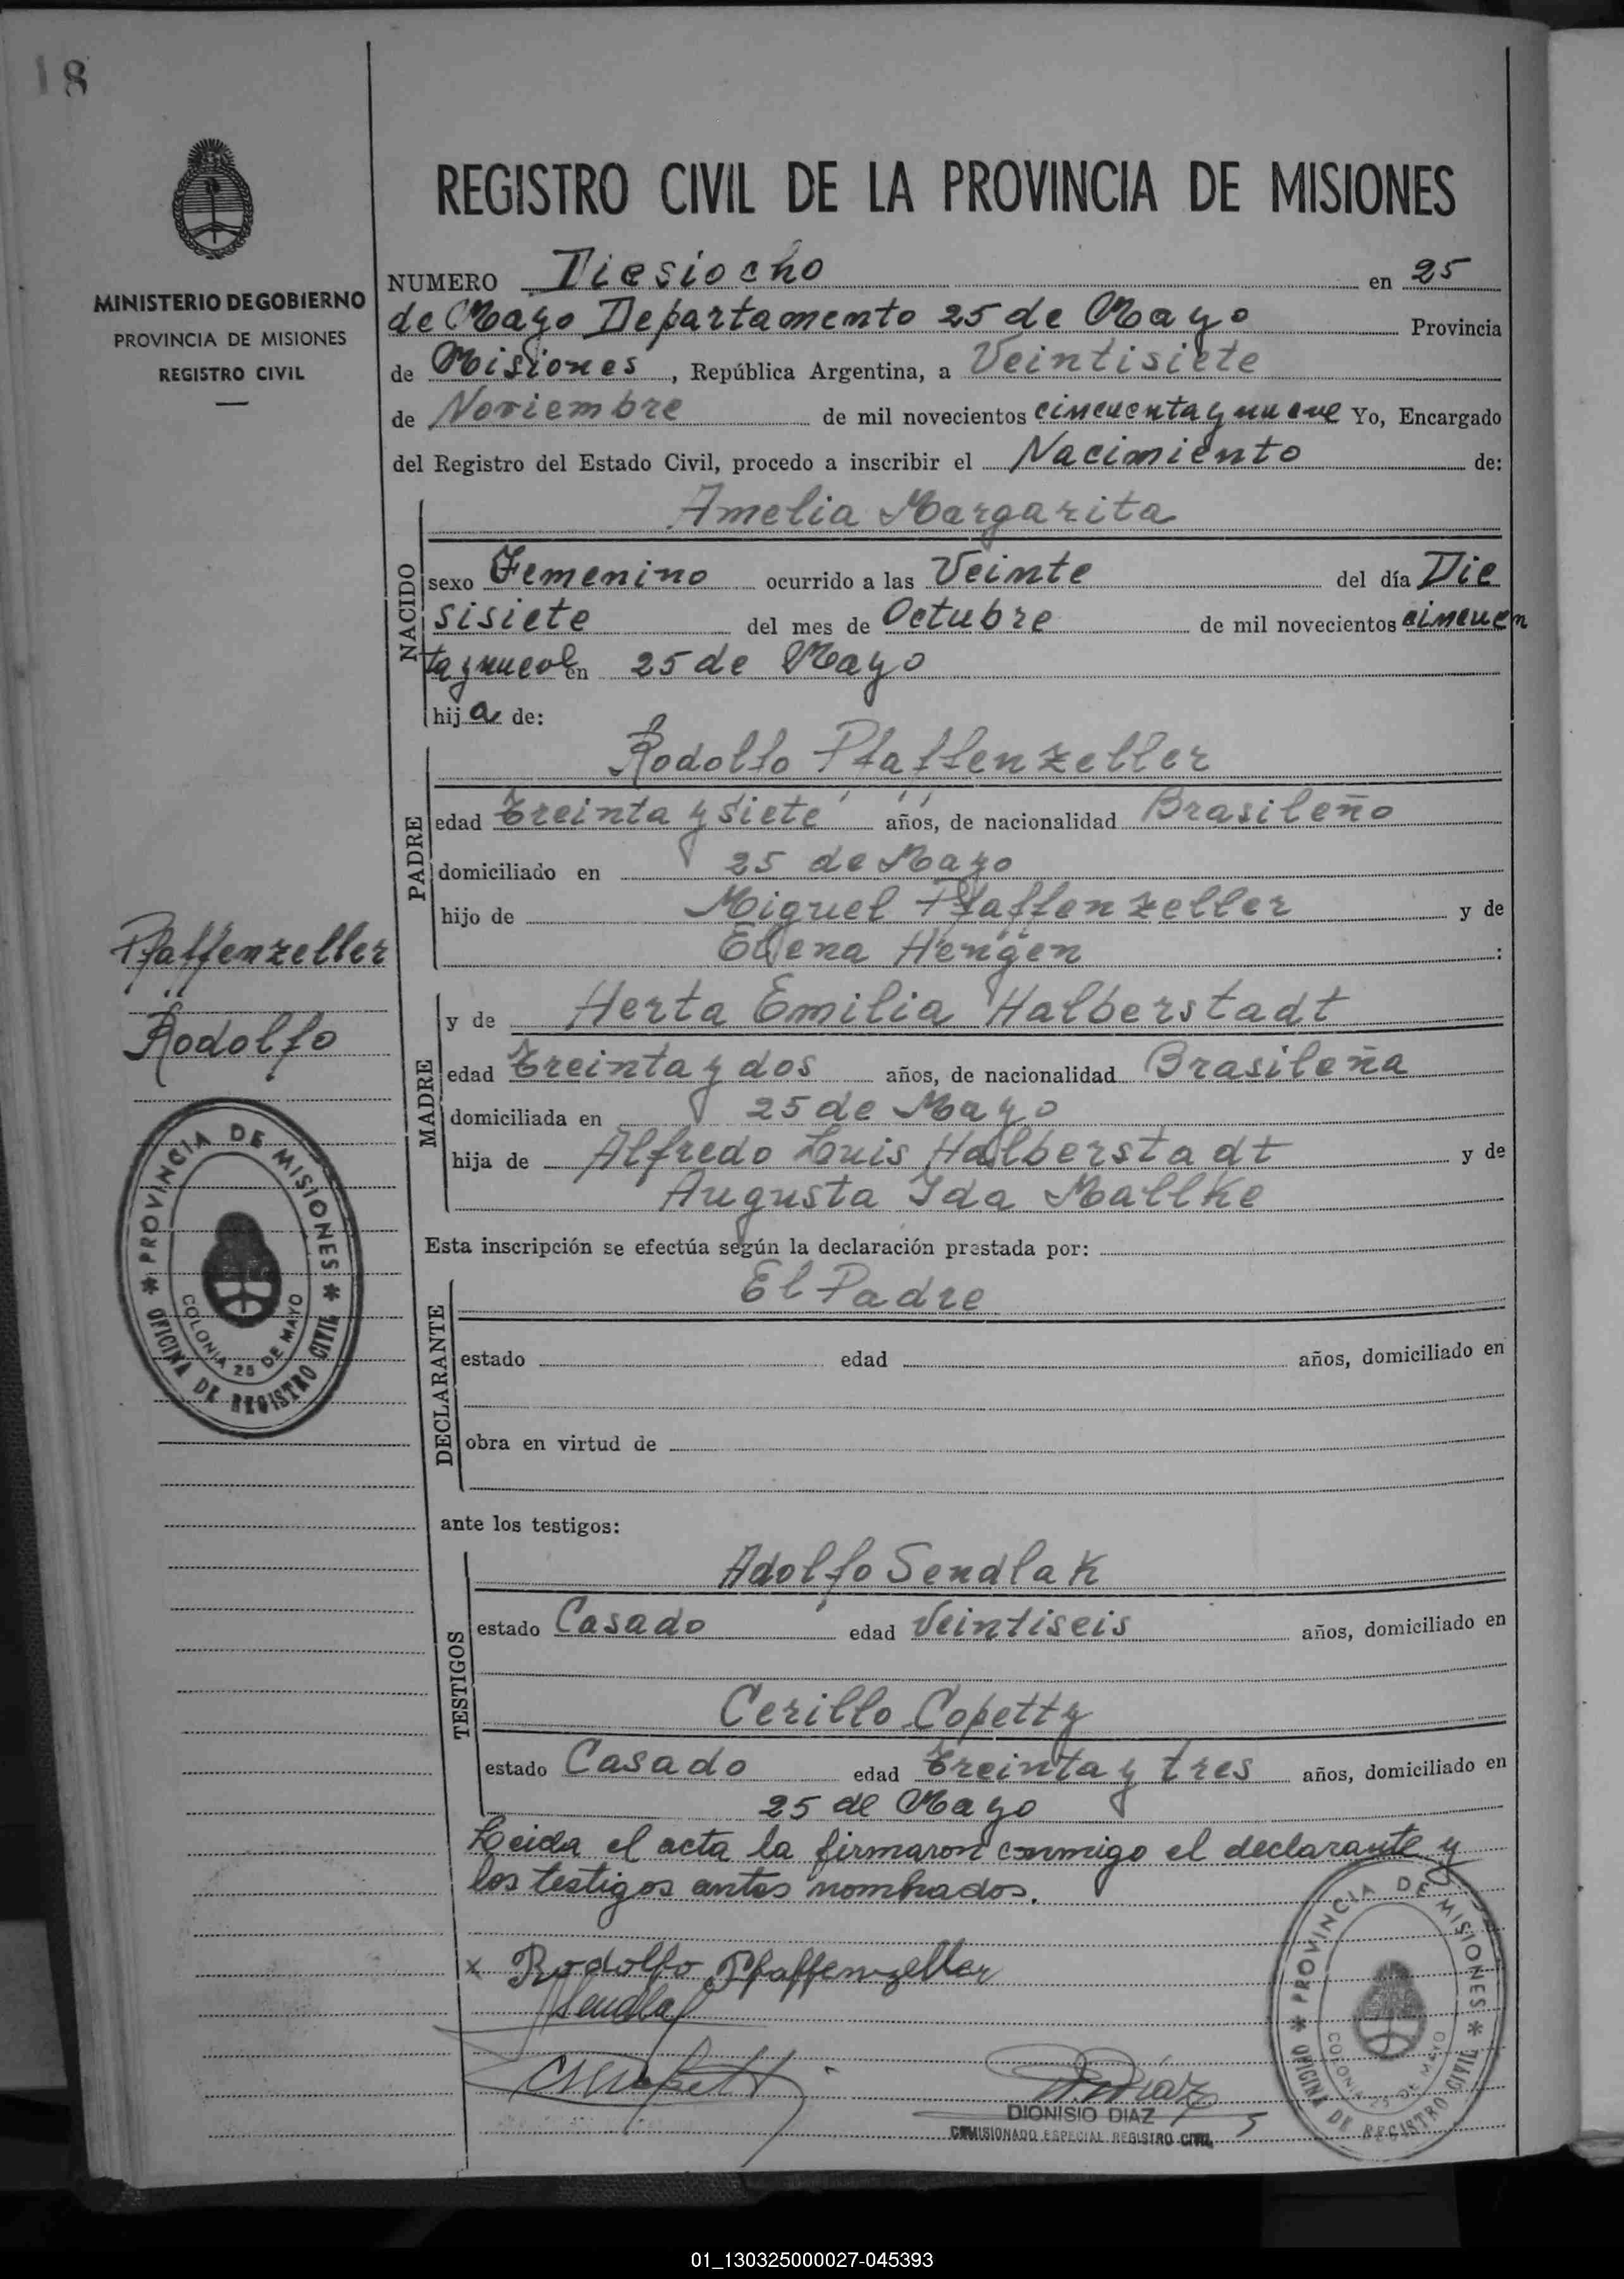 18
MINISTERIO DE GOBIERNO
PROVINCIA DE MISIONES
REGISTRO CIVIL
REGISTRO CIVIL DE LA PROVINCIA DE MISIONES
NUMERO Diesiocho en 25
de Mayo Departamento 25 de Mayo Provincia
de Misiones, República Argentina, a Veintisiete
de Noviembre de mil novecientos cincuenta y nueve Yo, Encargado
del Registro del Estado Civil, procedo a inscribir el Nacimiento de:
Amelia Margarita
NACIDO
sexo Femenino ocurrido a las Veinte del día Die
sisiete del mes de Octubre de mil novecientos cincuen
ta y nueve en 25 de Mayo
hija de:
Rodolfo Pfaffenzeller
PADRE
edad treinta y siete años, de nacionalidad Brasileño
domiciliado en 25 de Mayo
hijo de Miguel Pfaffenzeller y de
Elena Hengen :
Pfaffenzeller
Rodolfo
y de Herta Emilia Halberstadt
MADRE
edad treinta y dos años, de nacionalidad Brasileña
domiciliada en 25 de Mayo
hija de Alfredo Luis Halberstadt y de
Augusta Ida Mallke
PROVINCIA DE MISIONES
OFICINA DE REGISTRO CIVIL
COLONIA 25 DE MAYO
Esta inscripción se efectúa según la declaración prestada por:
El Padre
DECLARANTE
estado edad años, domiciliado en
obra en virtud de
ante los testigos:
Adolfo Sendlak
TESTIGOS
estado Casado edad Veintiseis años, domiciliado en
Cerillo Copetty
estado Casado edad treinta y tres años, domiciliado en
25 de Mayo
Leida el acta la firmaron conmigo el declarante y
los testigos antes nombrados.
x Rodolfo Pfaffenzeller
Sendlak
D. Diaz
DIONISIO DIAZ
COMISIONADO ESPECIAL REGISTRO CIVIL
PROVINCIA DE MISIONES
OFICINA DE REGISTRO CIVIL
COLONIA 25 DE MAYO
01_130325000027-045393